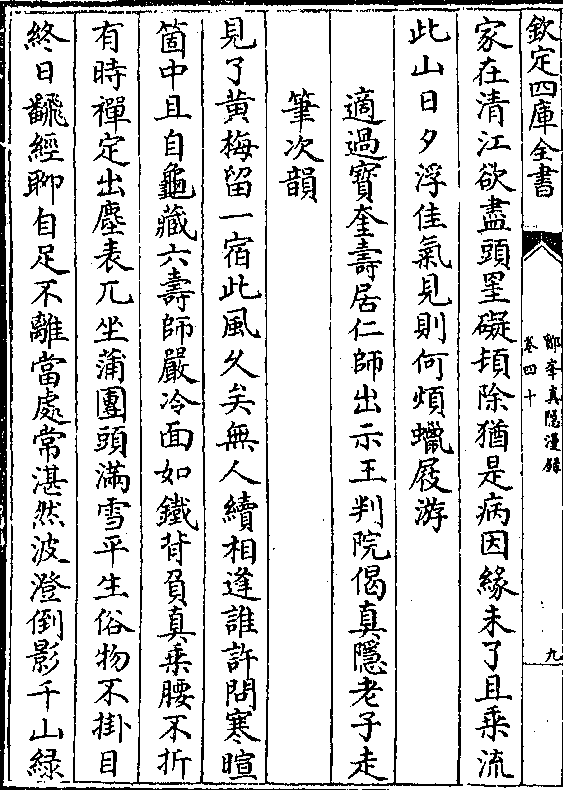 欽定四庫全書
鄮峯真隱漫錄
卷四十
九
家在清江欲盡頭罣礙頓除猶是病因緣未了且乗流
此山日夕浮佳氣見則何煩蠟屐游
適過寳奎壽居仁師出示王判院偈真隱老子走
筆次韻
見了黄梅留一宿此風久矣無人續相逢誰許問寒暄
箇中且自龜藏六壽師嚴冷面如鐵背負真乗腰不折
有時禪定出塵表兀坐蒲團頭滿雪平生俗物不掛目
終日飜經聊自足不離當處常湛然波澄倒影千山緑